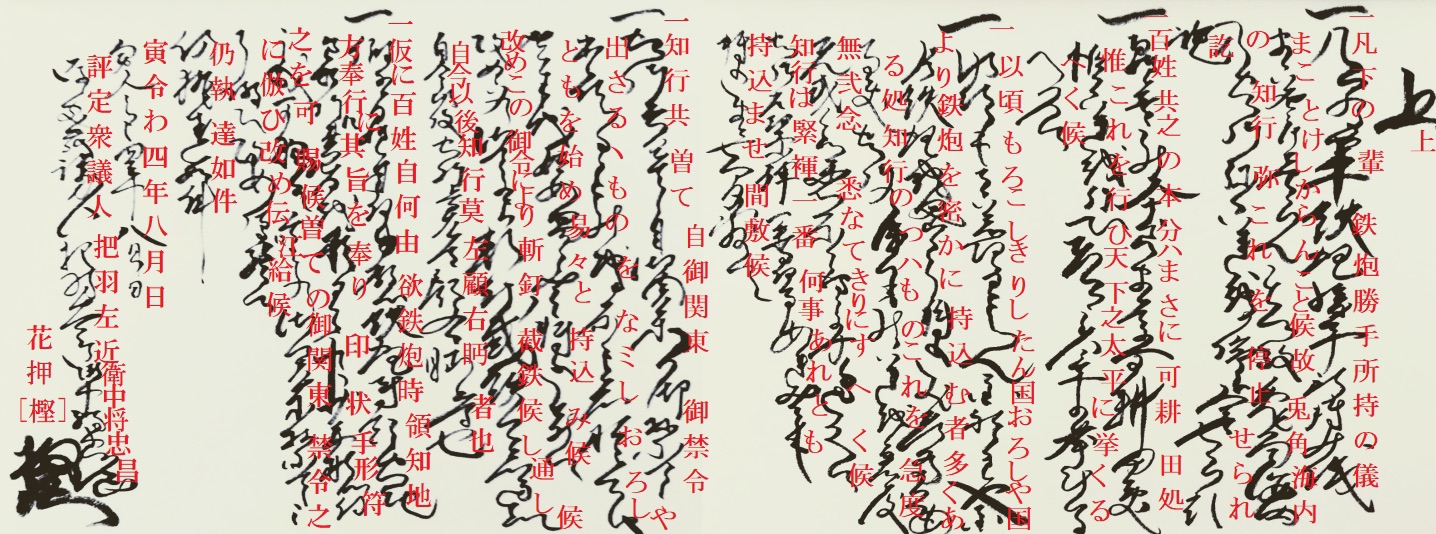 上
一凡下の輩 鉄炮勝手所持の儀
まことけしからんこと候故 兎角海内
の 知行 弥 これ を 停止 せられ
訖
一百姓共之の本分ハまさに可耕 田処
惟これを行ひ天下之太平に挙くる
へく候
一以頃もろこしきりしたん国おろしや国
より鉄炮を密かに 持込む者多くあ
る処知行のつハものこれを 急度
無弐念 悉なてきりにすへく候
知行は緊褌一番 何事あれとも
持込ませ間敷候
一知行共 曽て 自御関東 御禁令
出さるゝものをなミしおろしや
ともを始め易々と 持込み候 候
改めこの御令により斬釘截鉄候し通し
自今以後知行莫左顧右眄者也
一仮に百姓自何由 欲鉄炮時 領知地
方奉行に其旨を奉り 印 状 手形符
之を可 賜候曽ての御関東 禁令之
に倣ひ改め伝 給候
仍執達如件
寅令わ四年八月日
評定衆議人 把羽左近衛中将忠昌
花押[樫]